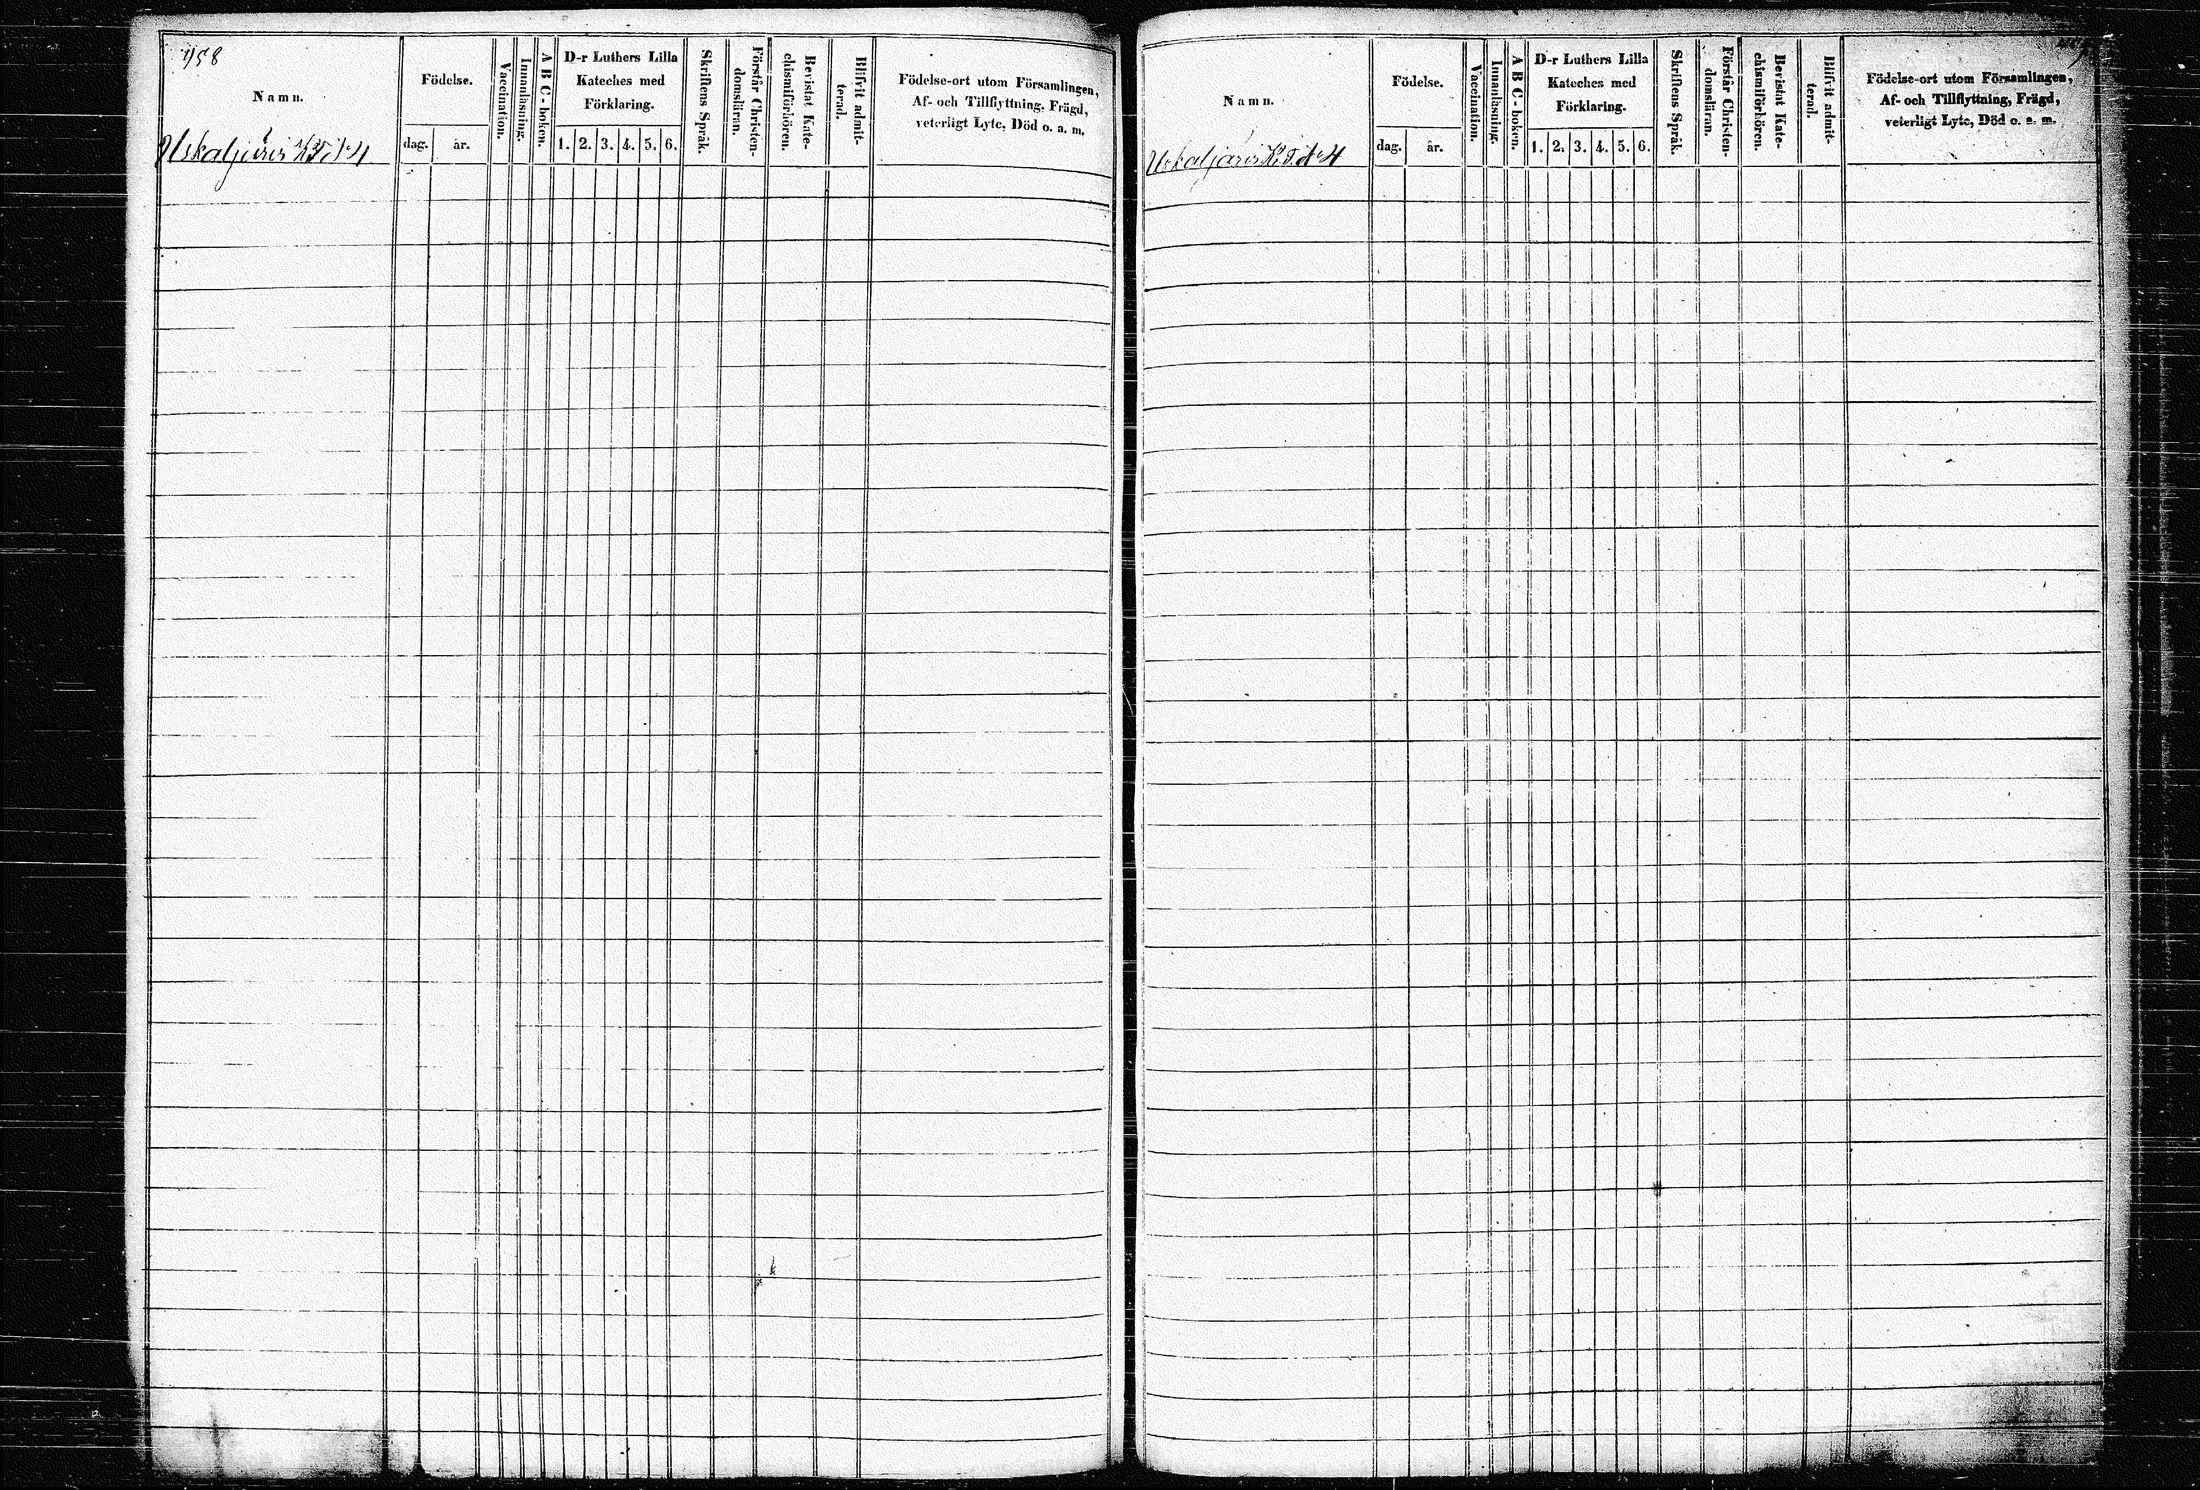 458
Namn.
Födelse.
dag. år.
Vaccination.
Innanläsning.
A B C-boken.
D-r Luthers Lilla
Kateches med
Förklaring.
1. 2. 3. 4. 5. 6.
Skriftens Språk.
Förstår Christen-
domsläran.
Bevistat Kate-
chismiförhören.
Blifvit admit-
terad.
Födelse-ort utom Församlingen,
Af- och Tillflyttning, Frägd,
veterligt Lyte, Död o. a. m.
Uskaljärvi No 4
Namn.
Födelse.
dag. år.
Vaccination.
Innanläsning.
A B C-boken.
D-r Luthers Lilla
Kateches med
Förklaring.
1. 2. 3. 4. 5. 6.
Skriftens Språk.
Förstår Christen-
domsläran.
Bevistat Kate-
chismiförhören.
Blifvit admit-
terad.
Födelse-ort utom Församlingen,
Af- och Tillflyttning, Frägd,
veterligt Lyte, Död o. a. m.
Uskaljärvi No 4